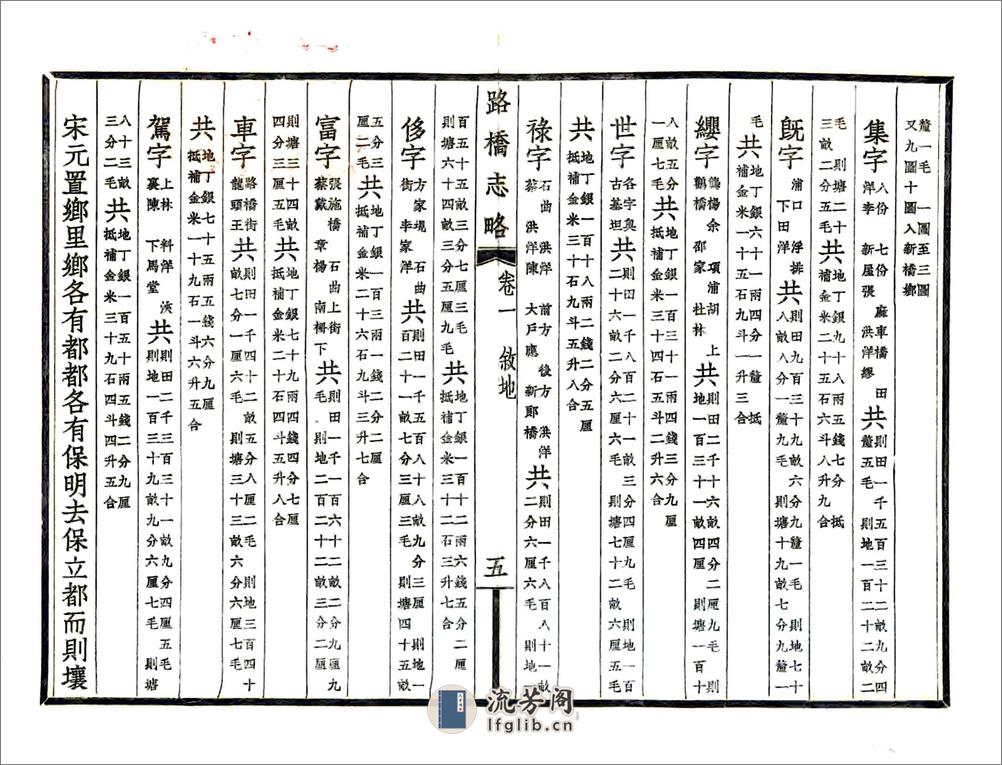 釐一毛 一圖至三圖
又九圖十圖入新橋鄉
集字 八份 七份 麻車橋 田
洋李 新屋張 洪洋繆 共 則田一千五百三十二畝九分四
釐五毛 則地一百二十二畝二
毛 則塘二十
三畝二分五 共 地丁銀一百八兩五錢七分 抵
補金米二十五石六斗八升九合
既字 浦口 浮排
下田洋 共 則田九百三十九畝六分九釐一毛 則地七十
八畝八分一釐九毛 則塘十九畝七分九釐一
毛 共 地丁銀六十一兩四分一釐 抵
補金米一十五石九斗一升三合
纓字 龔楊余邵家 項浦胡 上
鸛橋 杜林 共 則田二千十六畝四分二厘九毛 則
地一百三十一畝四厘 則塘一百十
八畝五分
一厘二毛 共 地丁銀一百三十一兩四錢三分九厘
抵補金米三十四石五斗二升六合
世字 各字奧
古墓坦 共 則田一千八百二十一畝三分四厘九毛 則地一百
二十畝二分六厘六毛 則塘七十二畝六厘五毛
共 地丁銀一百十八兩二錢二分五厘
抵補金米三十石九斗九升八合
祿字 石曲 洪洋 前方 後方 洪洋
蔡 洪洋陳 大戶應 新郎橋 共 則田一千八百八十一畝
二分六厘六毛 則地一
路橋志略 卷一 敘地 五
百五十五畝三分七厘三毛
則塘六十四畝三分五厘九毛 共 地丁銀一百二十二兩六錢五分二厘
抵補金米三十二石三升七合
侈字 方家堄 石曲
街 李家洋 共 則田一千五百八十八畝九分三厘 則地一
百二十一畝七分三厘三毛 則塘四十五畝
五分三
厘二毛 共 地丁銀一百二兩一錢二分二厘
抵補金米二十六石九斗三升七合
富字 張施橋 石曲上街
蔡戴 章楊 南柵下 共 則田一千一百六十二畝二分九厘九
毛 則地二百二十二畝三分二厘
則塘三十四畝
四分三厘五毛 共 地丁銀七十九兩四錢四分七厘
抵補金米二十石四斗五升八合
車字 路橋街
龍頭王 共 則田一千四十二畝五分八厘二毛 則地三百四十
畝七分一厘六毛 則塘三十三畝六分六厘七毛
共 地丁銀七十五兩五錢六分九厘
抵補金米一十九石一斗六升五合
駕字 上林 料洋 洨
裏陳 下馬堂 共 則田二千三百三十一畝九分四厘五毛
則地一百三十九畝九分六厘七毛 則塘
八十三畝
三分二毛 共 地丁銀一百五十一兩五錢二分九厘
抵補金米三十九石四斗四升五合
宋元置鄉里鄉各有都都各有保明去保立都而則壤
流芳阁
lfglib.cn